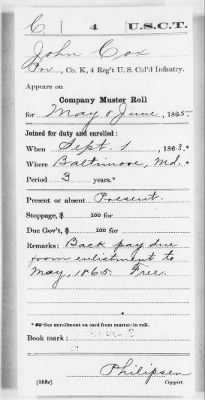 C 4 U.S.C.T.
John Cox
Pvt., Co. K, 4 Reg't U. S. Col'd Infantry.
Appears on
Company Muster Roll
for May & June, 1865.
Joined for duty and enrolled:
When Sept. 1, 1863.*
Where Baltimore, Md.*
Period 3 years.*
Present or absent Present.
Stoppage, $ 100 for
Due Gov't, $ 100 for
Remarks: Back pay due
from enlistment to
May, 1865. Free.
*See enrollment on card from muster-in roll.
Book mark:
Philipsen
(358c) Copyist.